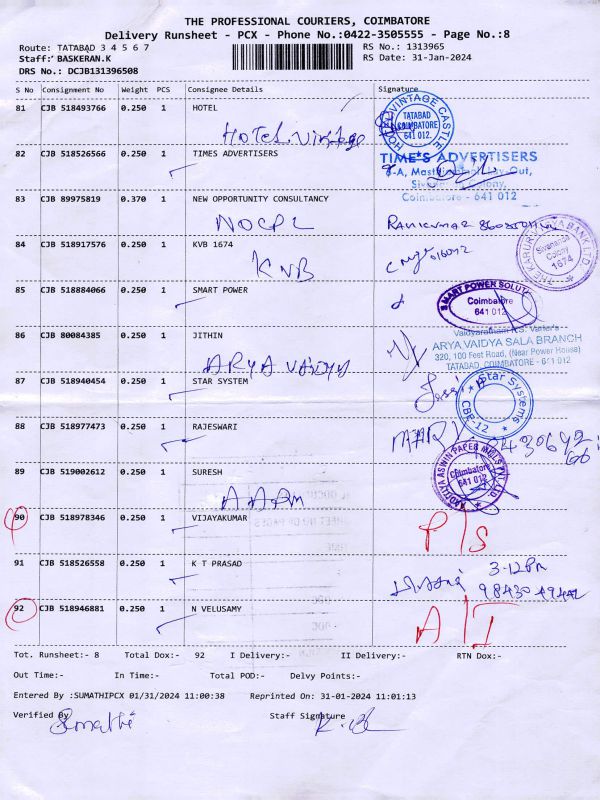 THE PROFESSIONAL COURIERS, COIMBATORE
Delivery Runsheet - PCX - Phone No.:0422-3505555 - Page No.:8
Route: TATABAD 3 4 5 6 7
RS No.: 1313965
Staff: BASKERAN.K
RS Date: 31-Jan-2024
DRS No.: DCJB131396508
S No Consignment No Weight PCS Consignee Details Signature
81 CJB 518493766 0.250 1 HOTEL
HOTEL VINTAGE CASTLE
TATABAD
COIMBATORE
641 012.
Hotel. Vintage
82 CJB 518526566 0.250 1 TIMES ADVERTISERS
TIME'S ADVERTISERS
Coimbatore - 641012
83 CJB 89975819 0.370 1 NEW OPPORTUNITY CONSULTANCY
NOCPL
84 CJB 518917576 0.250 1 KVB 1674
KVB
THE KARUR VYSYA BANK LTD
Sivananda
Colony
1674
85 CJB 518884066 0.250 1 SMART POWER
SMART POWER SOLUTI
Coimbatore
641 012
86 CJB 80084385 0.250 1 JITHIN
Vaidyaratnam P.S. Varier's
ARYA VAIDYA SALA BRANCH
320, 100 Feet Road, (Near Power House)
TATABAD, COIMBATORE - 641 012
ARYA VAIDYA
87 CJB 518940454 0.250 1 STAR SYSTEM
Star Systems
CBE-12
88 CJB 518977473 0.250 1 RAJESWARI
89 CJB 519002612 0.250 1 SURESH
AADITYA ASWIN PAPER MILLS PVT LTD
Coimbatore
641 012
AAPM
90 CJB 518978346 0.250 1 VIJAYAKUMAR
P/S
91 CJB 518526558 0.250 1 K T PRASAD
3-12PM
92 CJB 518946881 0.250 1 N VELUSAMY
A/I
Tot. Runsheet:- 8 Total Dox:- 92 I Delivery:- II Delivery:- RTN Dox:-
Out Time:- In Time:- Total POD:- Delvy Points:-
Entered By :SUMATHIPCX 01/31/2024 11:00:38 Reprinted On: 31-01-2024 11:01:13
Verified By Staff Signature
Sumathi